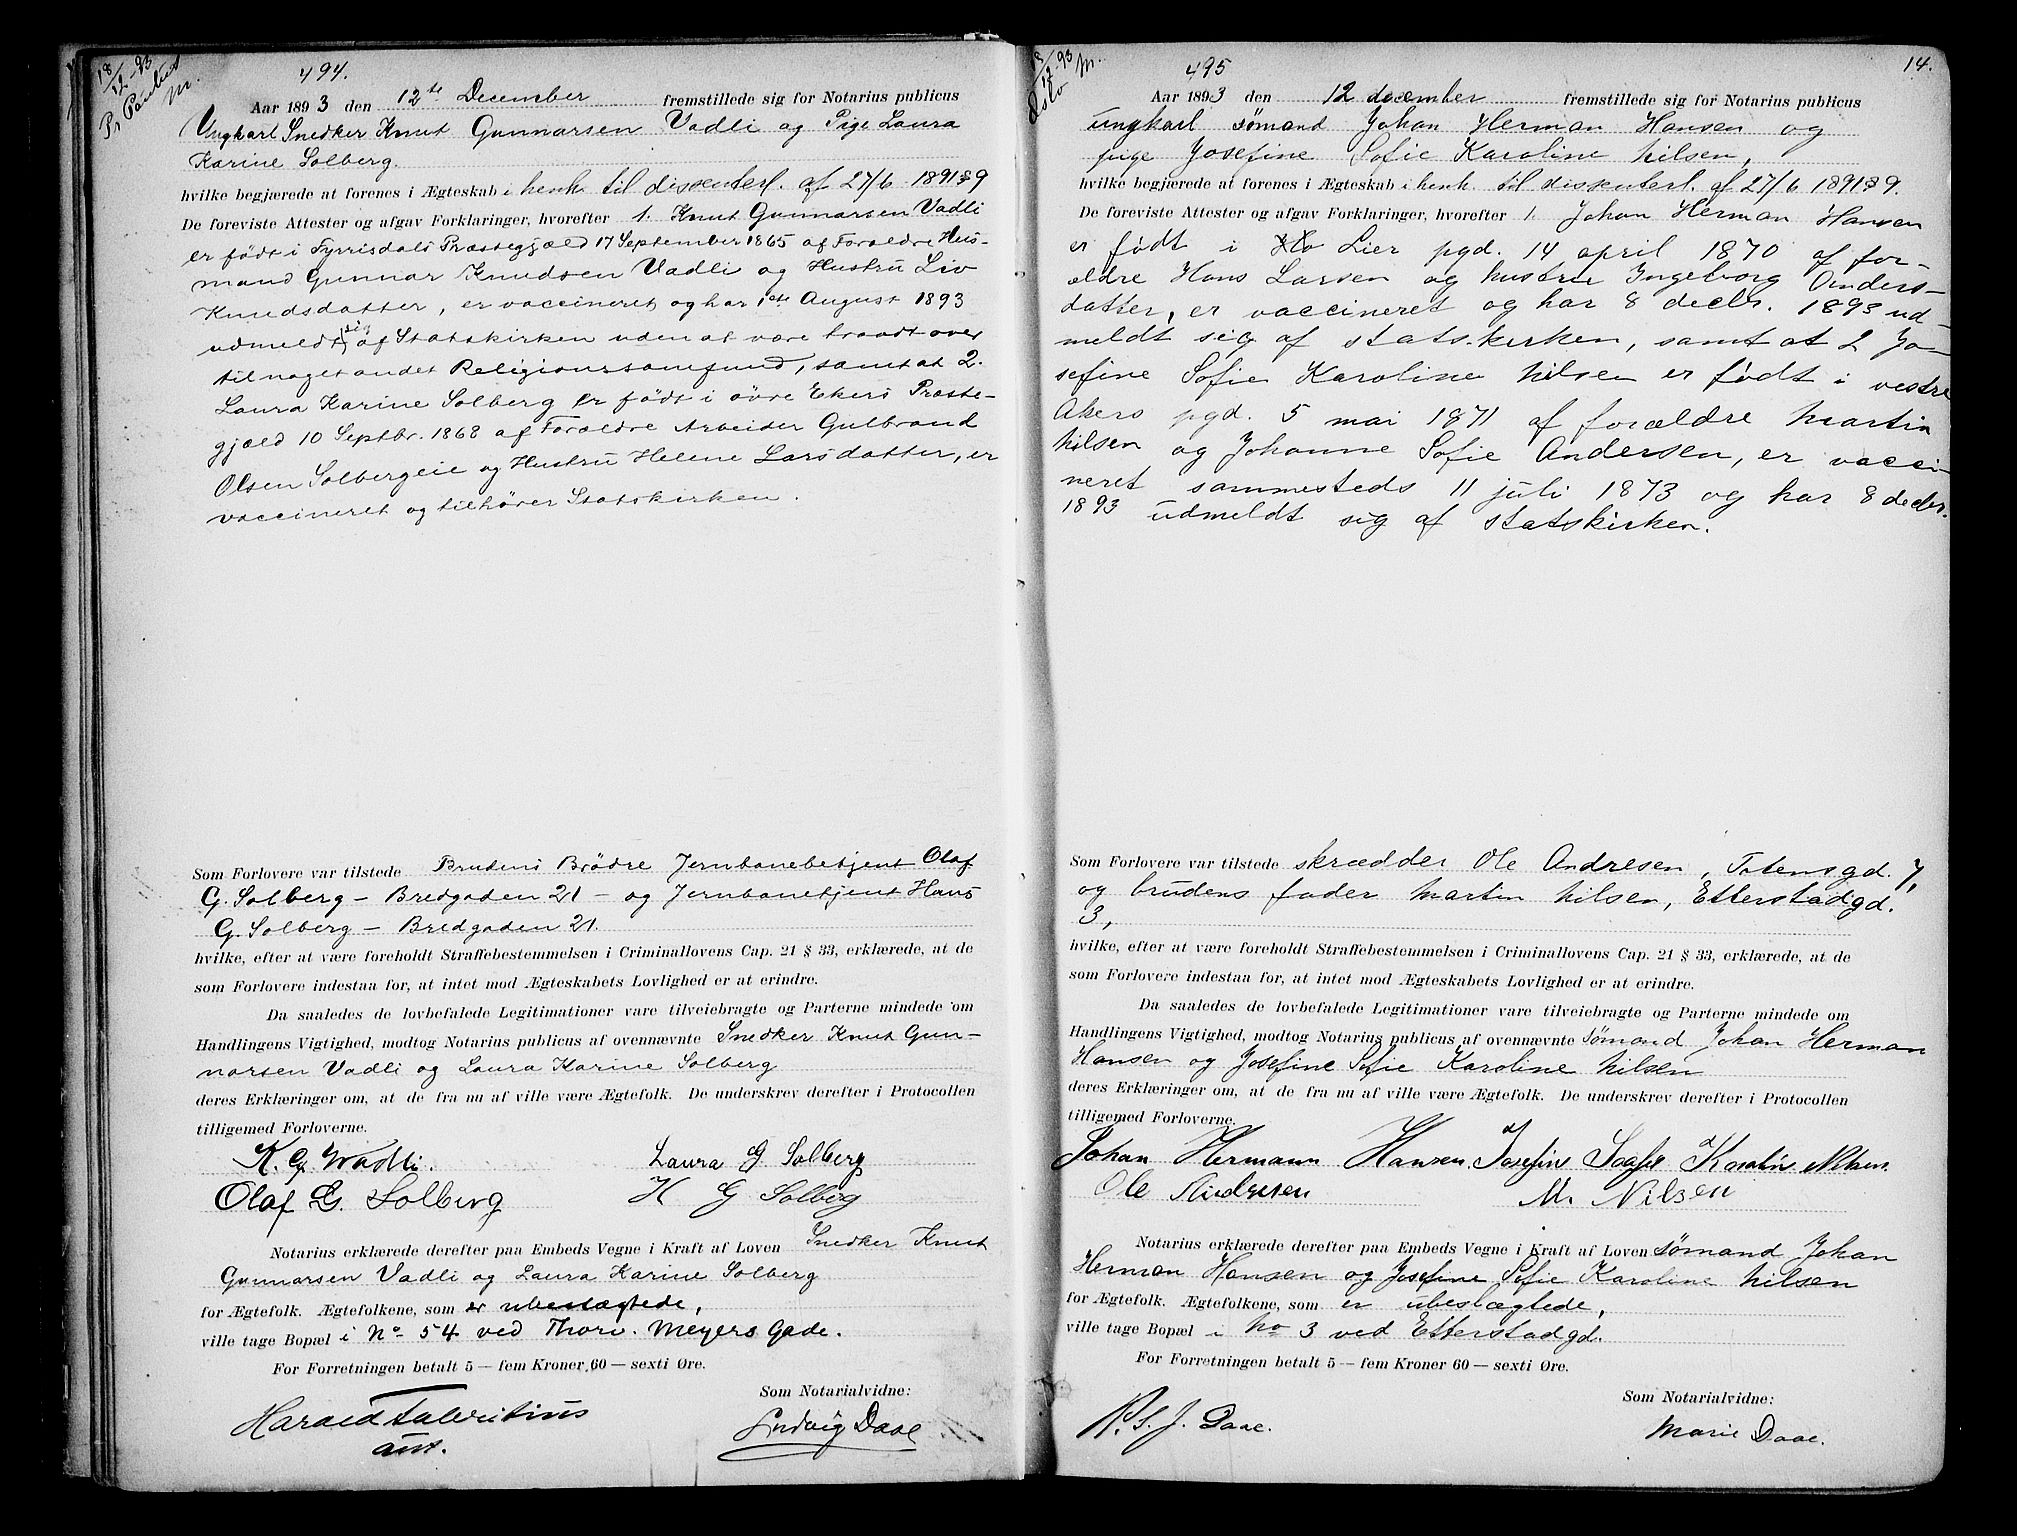 18/12-93
Pr Paulus
M.
494.
Aar 1893 den 12te December fremstillede sig for Notarius publicus
Ungkarl Snedker Knut Gunnarsen Vadli og Pige Laura
Karine Solberg.
hvilke begjærede at forenes i Ægteskab i henh. til dissenterl. af 27/6 1891 § 9
De foreviste Attester og afgav Forklaringer, hvorefter 1. Knut Gunnarsen Vadli
er født i Fyrrisdals Præstegjæld 17 September 1865 af Forældre Hus-
mand Gunnar Knudsen Vadli og Hustru Liv
Knudsdatter, er vaccineret og har 1ste August 1893
udmeldt sig af Statskirken uden at være traadt over
til noget andet Religionssamfund, samt at 2.
Laura Karine Solberg er født i øvre Ekers Præste-
gjæld 10 Septbr. 1868 af Forældre Arbeider Gulbrand
Olsen Solbergeie og Hustru Helene Larsdatter, er
vaccineret og tilhører Statskirken.
Som Forlovere var tilstede Brudens Brödre Jernbanebetjent Olaf
G. Solberg – Bredgaden 21 – og Jernbanetjent Hans
G. Solberg – Bredgaden 21.
hvilke, efter at være foreholdt Straffebestemmelsen i Criminallovens Cap. 21 § 33, erklærede, at de
som Forlovere indestaa for, at intet mod Ægteskabets Lovlighed er at erindre.
Da saaledes de lovbefalede Legitimationer vare tilveiebragte og Parterne mindede om
Handlingens Vigtighed, modtog Notarius publicus af ovennævnte Snedker Knut Gun-
narsen Vadli og Laura Karine Solberg
deres Erklæringer om, at de fra nu af ville være Ægtefolk. De underskrev derefter i Protocollen
tilligemed Forloverne.
K. G. Wadli. Laura G Solberg
Olaf G. Solberg H G Solberg
Notarius erklærede derefter paa Embeds Vegne i Kraft af Loven Snedker Knut
Gunnarsen Vadli og Laura Karine Solberg
for Ægtefolk. Ægtefolkene, som er ubeslægtede,
ville tage Bopæl i No 54 ved Thorv. Meyers Gade.
For Forretningen betalt 5 — fem Kroner 60 — sexti Øre.
Som Notarialvidne:
Harald Fabritius Ludvig Daae
aut.
13/12-93 M.
Oslo
495
14.
Aar 1893 den 12 december fremstillede sig for Notarius publicus
ungkarl sømand Johan Herman Hansen og
pige Josefine Sofie Karoline Nilsen,
hvilke begjærede at forenes i Ægteskab i henh. til dissenterl. af 27/6 1891 § 9.
De foreviste Attester og afgav Forklaringer, hvorefter 1. Johan Herman Hansen
er født i Lier pgd. 14 april 1870 af for-
ældre Hans Larsen og hustru Ingeborg Anders-
datter, er vaccineret og har 8 decbr. 1893 ud-
meldt sig af statskirken, samt at 2 Jo-
sefine Sofie Karoline Nilsen er født i vestre
Akers pgd. 5 mai 1871 af forældre Martin
Nilsen og Johanne Sofie Andersen, er vacci-
neret sammesteds 11 juli 1873 og har 8 decbr.
1893 udmeldt sig af statskirken.
Som Forlovere var tilstede skrædder Ole Andresen, Totensgd. 7,
og brudens fader Martin Nilsen, Etterstadgd.
3,
hvilke, efter at være foreholdt Straffebestemmelsen i Criminallovens Cap. 21 § 33, erklærede, at de
som Forlovere indestaa for, at intet mod Ægteskabets Lovlighed er at erindre.
Da saaledes de lovbefalede Legitimationer vare tilveiebragte og Parterne mindede om
Handlingens Vigtighed, modtog Notarius publicus af ovennævnte sømand Johan Herman
Hansen og Josefine Sofie Karoline Nilsen
deres Erklæringer om, at de fra nu af ville være Ægtefolk. De underskrev derefter i Protocollen
tilligemed Forloverne.
Johan Hermann Hansen. Josefine Soofie Karoline Nilsen.
Ole Andresen M. Nilsen
Notarius erklærede derefter paa Embeds Vegne i Kraft af Loven sømand Johan
Herman Hansen og Josefine Sofie Karoline Nilsen
for Ægtefolk. Ægtefolkene, som er ubeslægtede,
ville tage Bopæl i No 3 ved Etterstadgd.
For Forretningen betalt 5 — fem Kroner 60 — sexti Øre.
Som Notarialvidne:
Daae. Marie Daae.